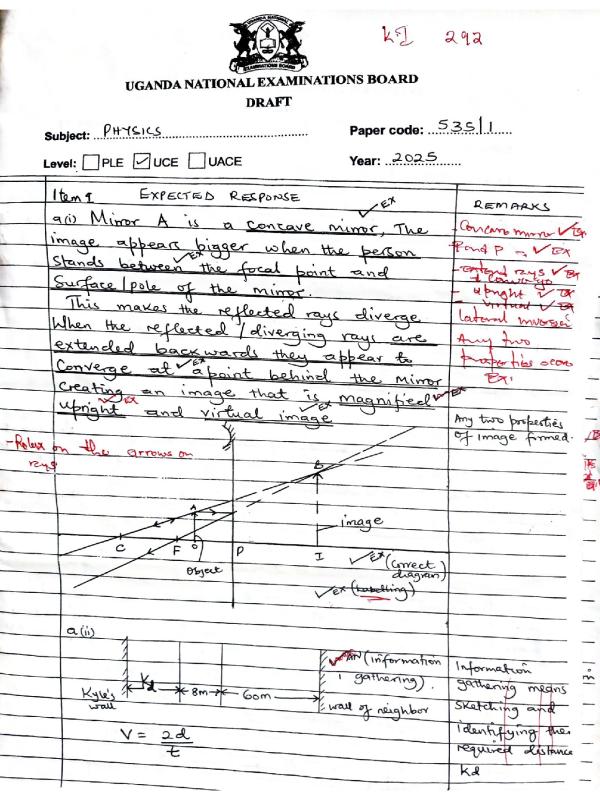 KJ 292
UGANDA NATIONAL EXAMINATIONS BOARD
DRAFT
Subject: PHYSICS
Paper code: 535/1
Level: PLE UCE UACE
Year: 2025
Item 1 EXPECTED RESPONSE
REMARKS
a(i) Mirror A is a concave mirror, The EX
image appears bigger when the person
stands between the focal point and EX
surface/pole of the mirror.
This makes the reflected rays diverge
When the reflected/diverging rays are
extended backwards they appear to
converge at a point behind the mirror EX
creating an image that is magnified EX
upright and virtual image EX EX
- Concave mirror EX
F and P EX
- extend rays EX
converge
- upright EX
- virtual EX
lateral
Any two
properties
EX.
Any two properties
of image formed.
- Relax on the arrows on
rays
B
A
image
C F O P I
Object
EX (Correct
diagram)
EX (Labelling)
a(ii)
AN (information
gathering).
Kd 8m 60m
Kyle's
wall
wall of neighbor
Information
gathering means
sketching and
identifying the
required distance
Kd
V = 2d
t